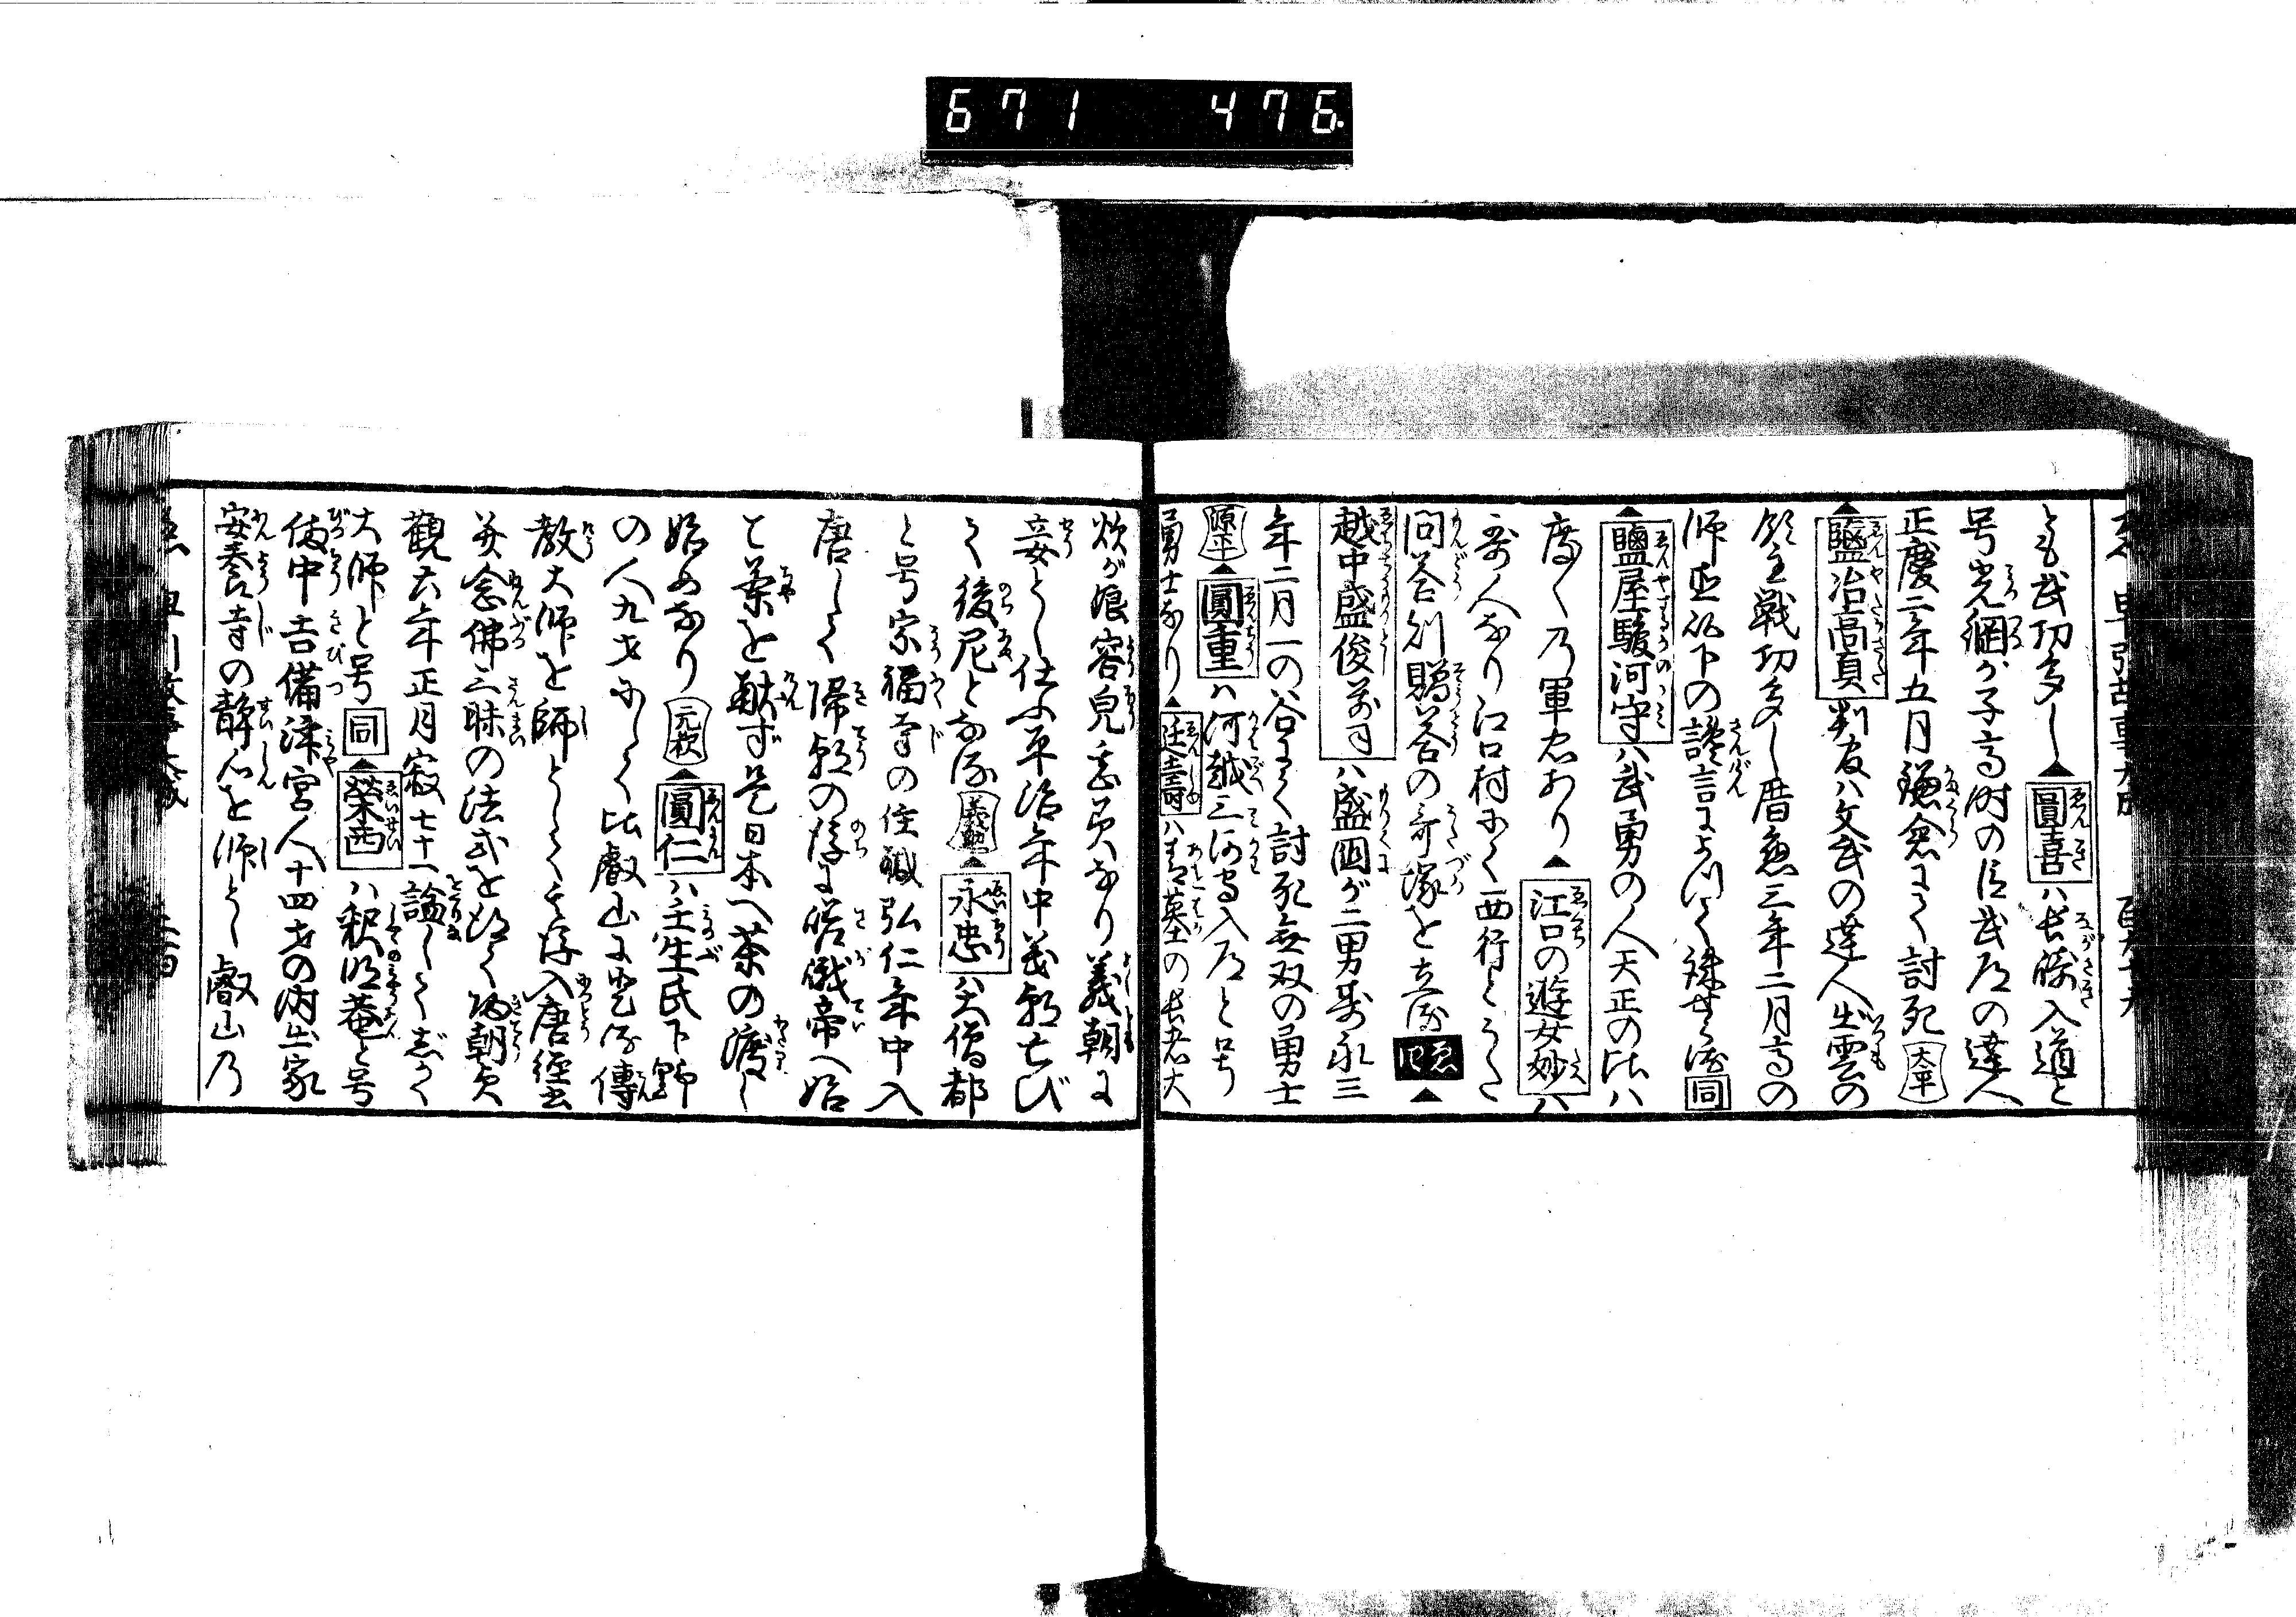 671 476
とも武功多し▲圓喜ハ長崎入道と
号光綱が子高時の臣武道の達人
正慶二年五月鎌倉にて討死太平
▲鹽冶高貞判官ハ文武の達人出雲の
領主戦功多し暦應三年二月高の
師直が下の讒言によつて誅せらる同
▲鹽屋駿河守ハ武勇の人天正の比ハ
度〱乃軍忠あり▲江口の遊女妙ハ
哥人なり江口村にて西行とうた
問答則贈答の哥塚を立る▲
越中盛俊ハ盛國が二男寿永三
年二月一の谷にて討死無双の勇士
源平▲圓重ハ河越三河守入道と号
勇士なり▲延壽ハ青墓の長者大
炊が娘容皃美女なり義朝に
妾とし仕ふ平治年中義朝亡び
て後尼となる▲永忠ハ大僧都
と号宗福寺の住職弘仁年中入
唐して帰朝の後に嵯峨帝へ始
て茶を献ず是日本へ茶の渡し
始めなり▲圓仁ハ壬生氏下野
の人九才にして比叡山に登る傳
教大師を師としてその後入唐経書
并念佛三昧の法式を得て帰朝貞
觀六年正月寂七十一諡して慈覚
大師と号同▲榮西ハ釈明菴と号
備中吉備津宮人十四才の内出家
安養寺の静心を師とし叡山乃